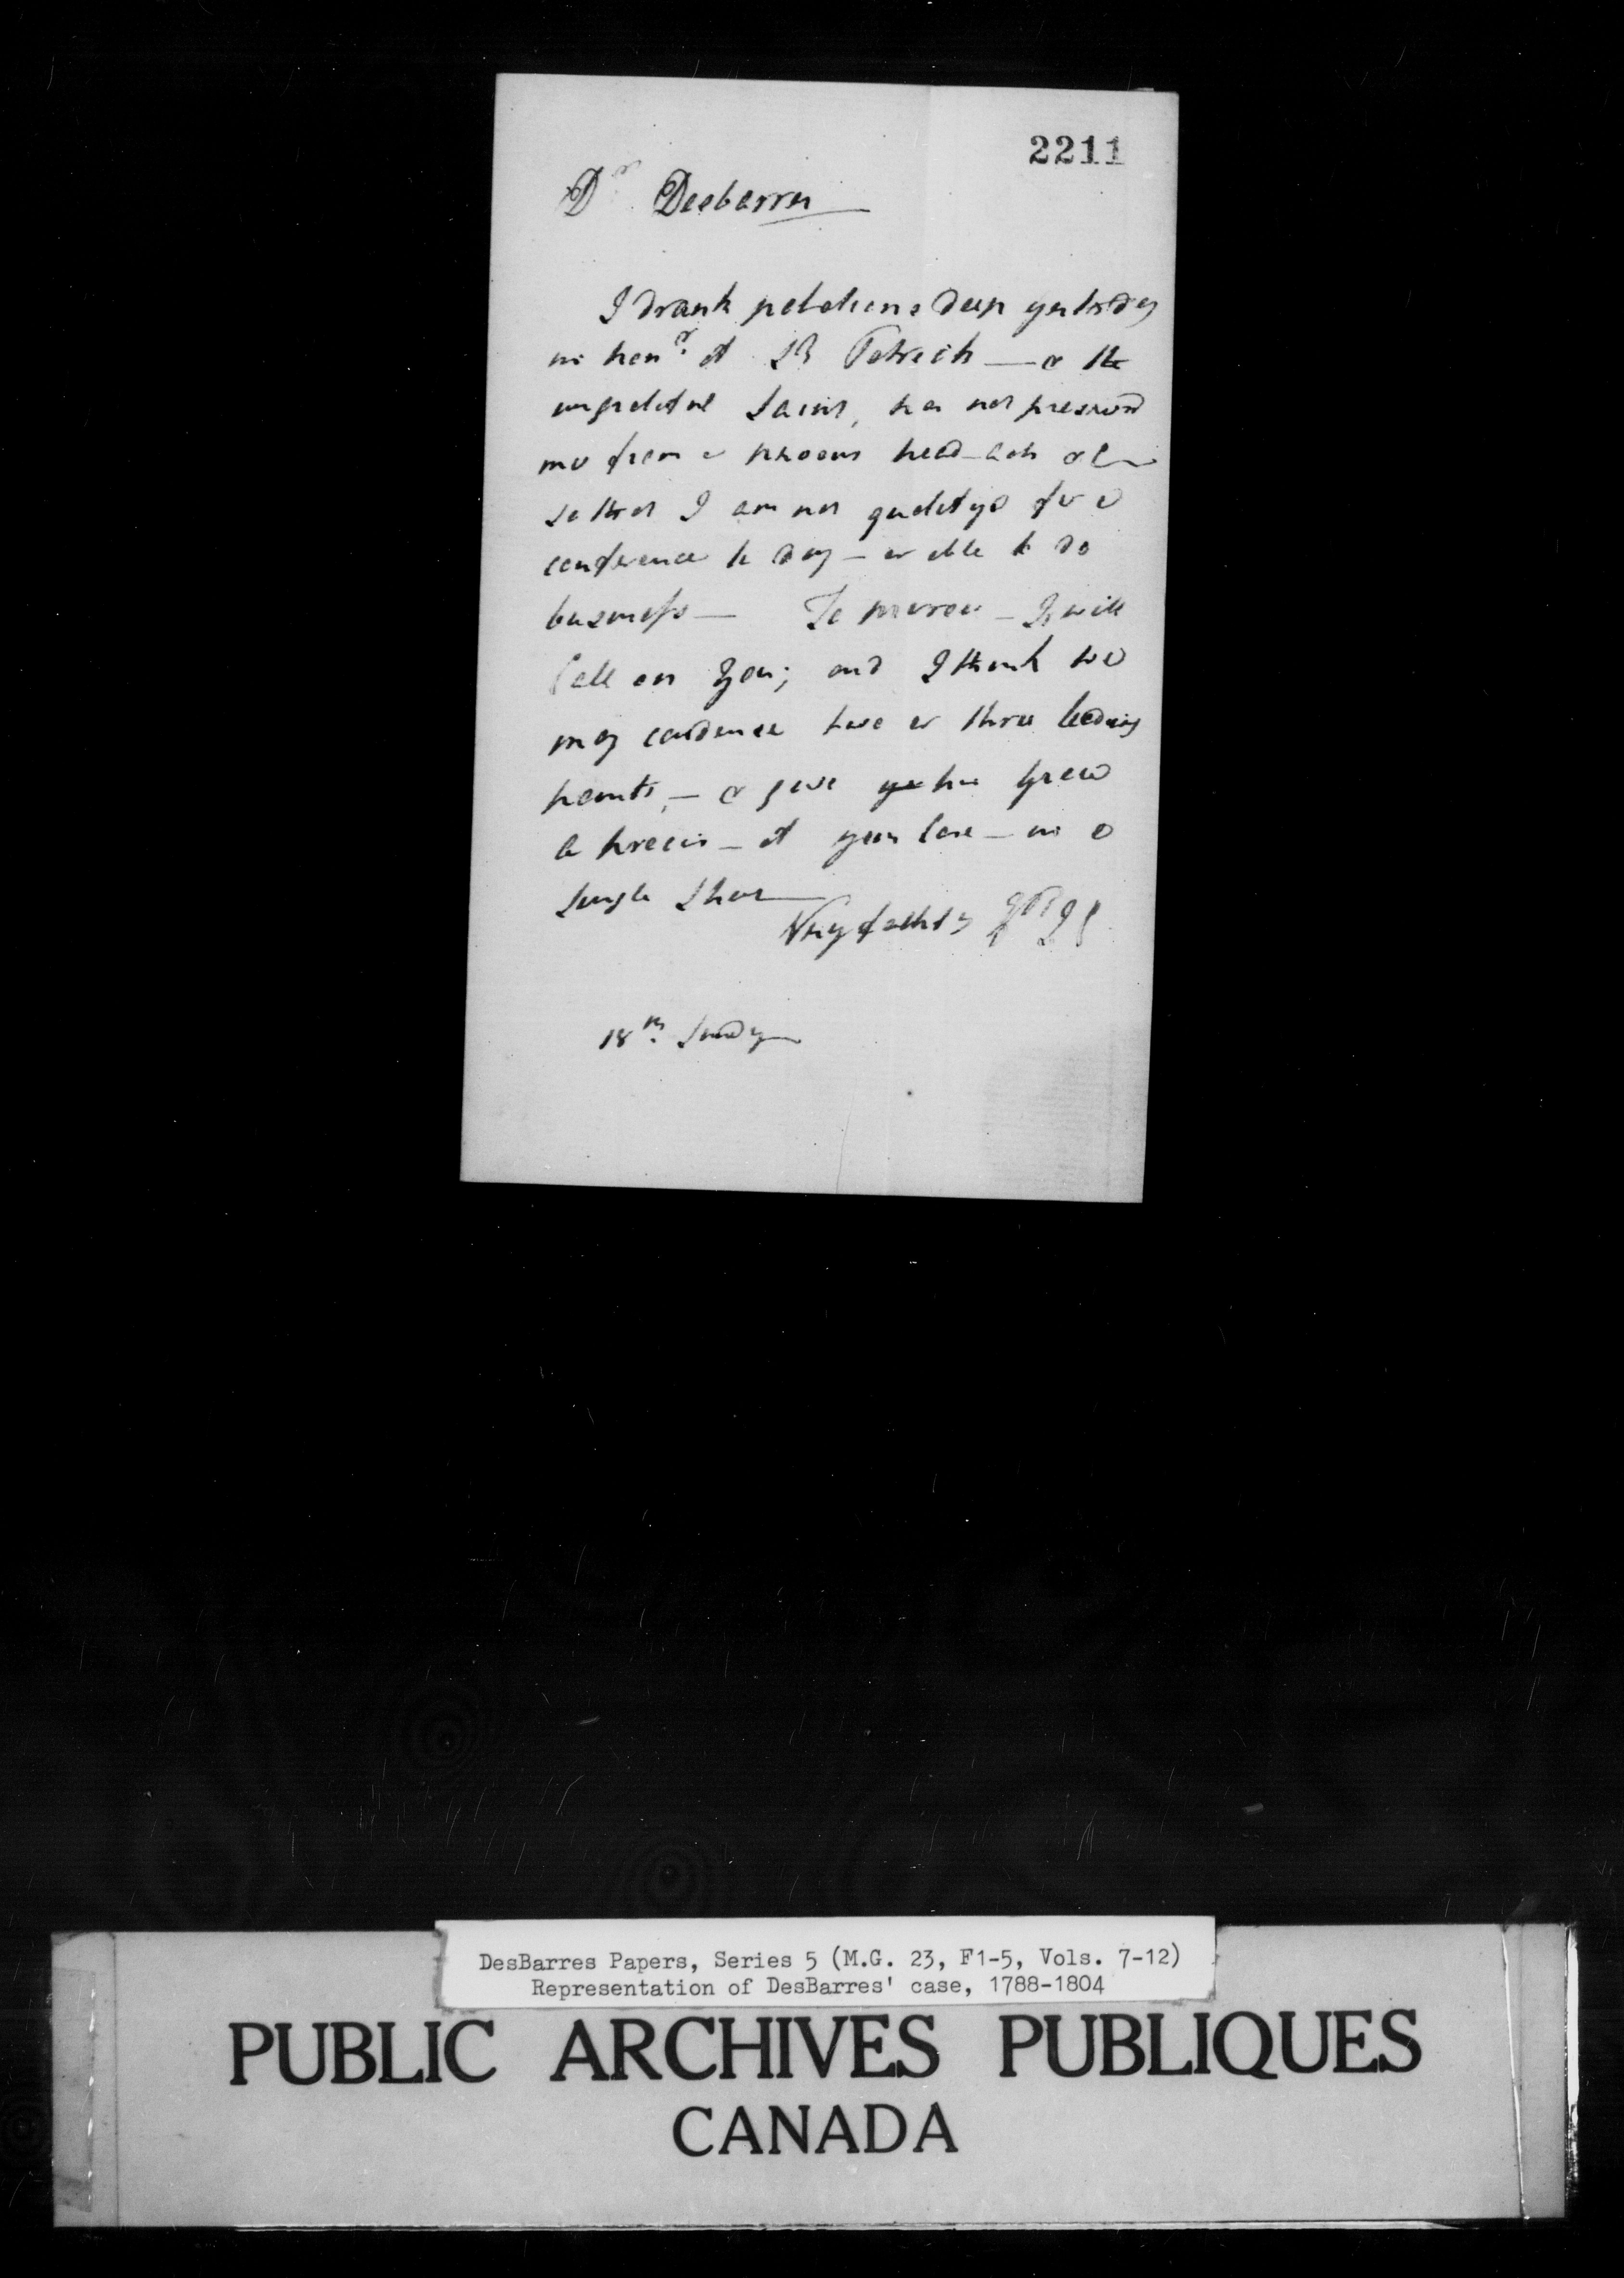 2211
Dr Desbarres
I drank potations deep yesterday
in honr. of St Patrick — & the
ungrateful Saint, has not preserved
me from a head-ach &c
so that I am not qualifyd for a
conference to day — or able to do
business — To morrow — I will
Call on You; and I think we
may condense two or three leading
points, — & give
a precis — of your Case — in a
single Sheet
Very faithfly
18th. Sunday
DesBarres Papers, Series 5 (M.G. 23, F1-5, Vols. 7-12)
Representation of DesBarres' case, 1788-1804
PUBLIC ARCHIVES PUBLIQUES
CANADA